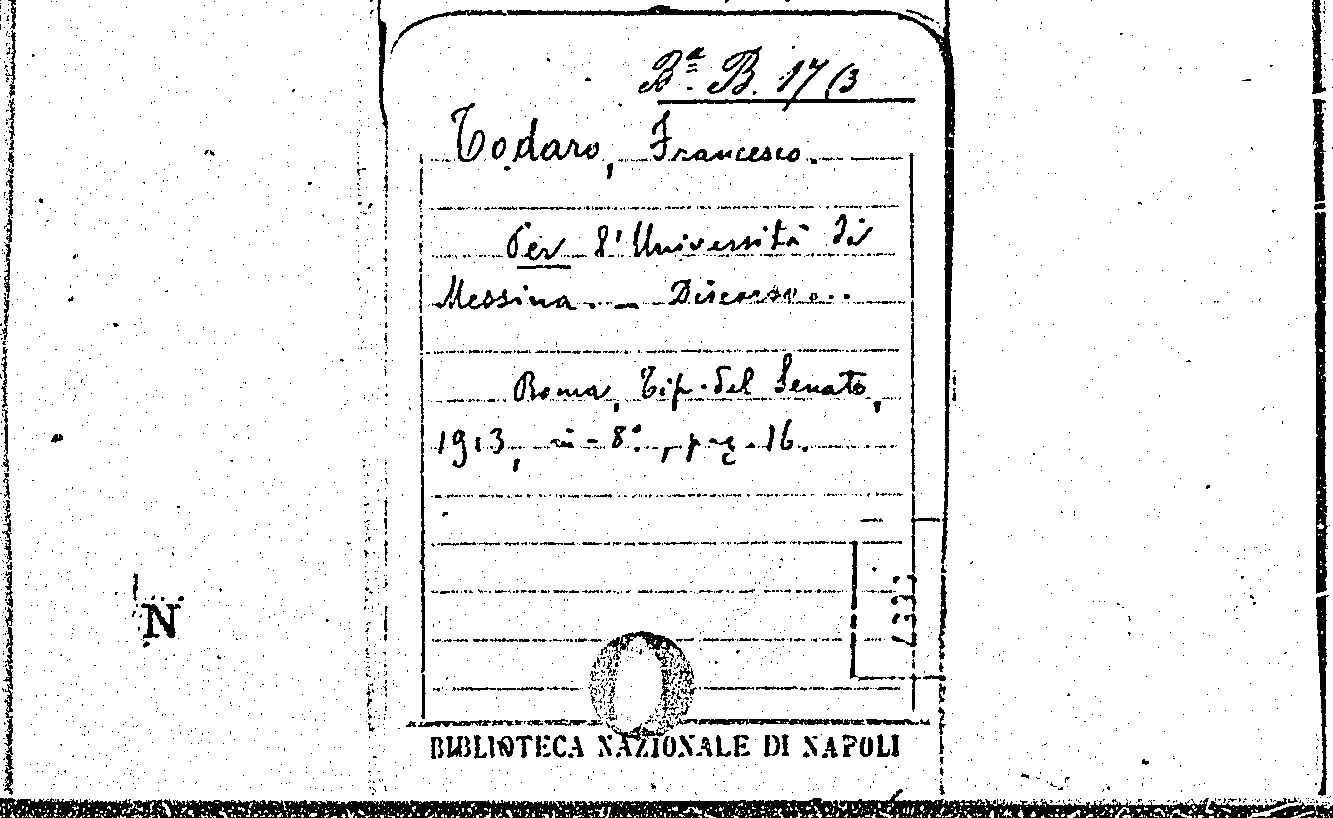 Bª B. 17 (3
Todaro, Francesco.
Per l'Università di
Messina. — Discorso...
Roma, Tip. del Senato,
1913, in-8°, pag. 16.
N
BIBLIOTECA NAZIONALE DI NAPOLI